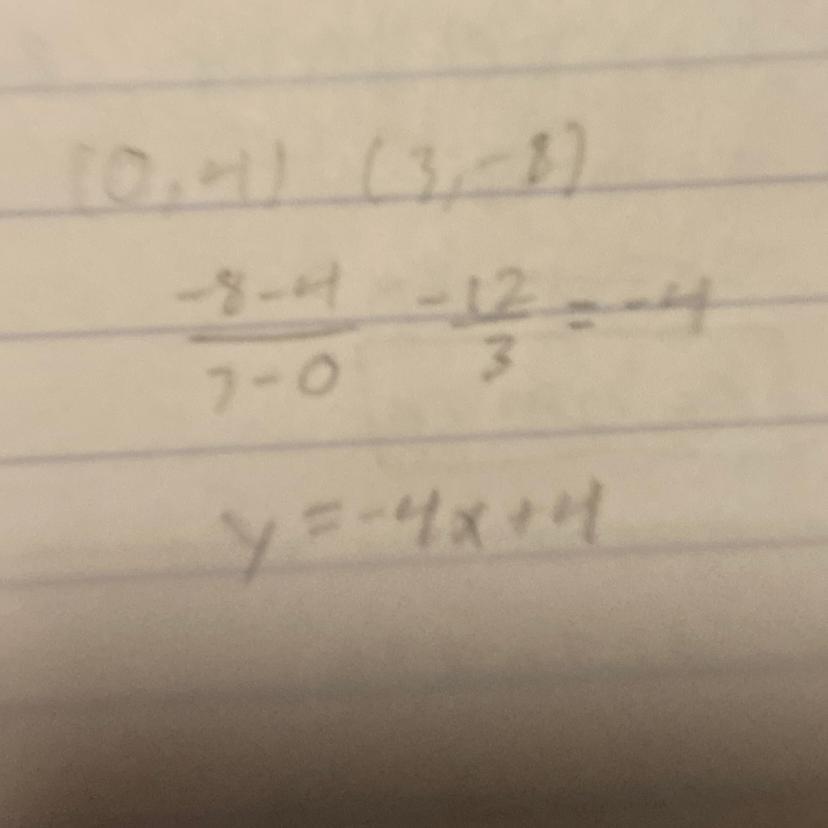 (0,4) (3,-8)
-8-4/3-0 -12/3 = -4
y=-4x+4